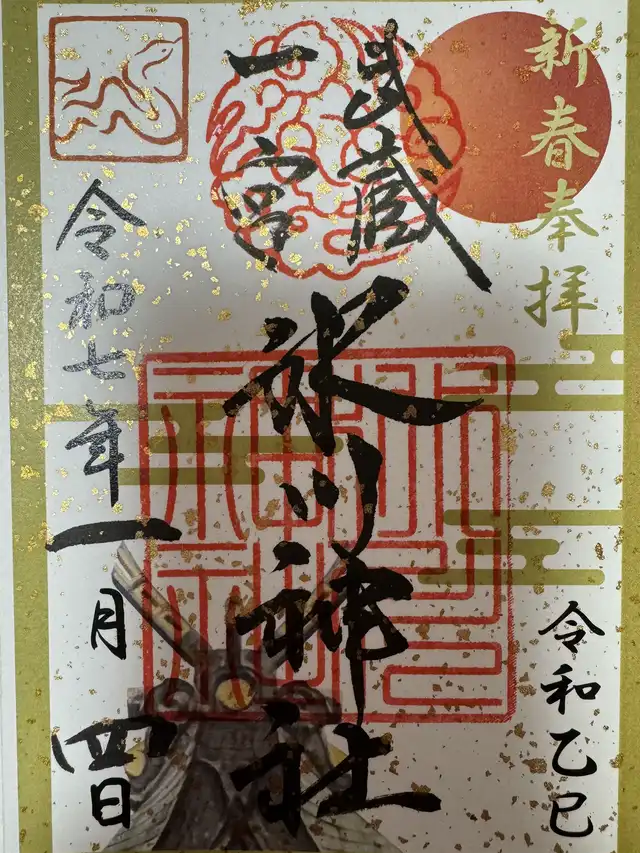 新春奉拝
武蔵
一宮
氷川神社
令和乙巳
令和七年一月四日